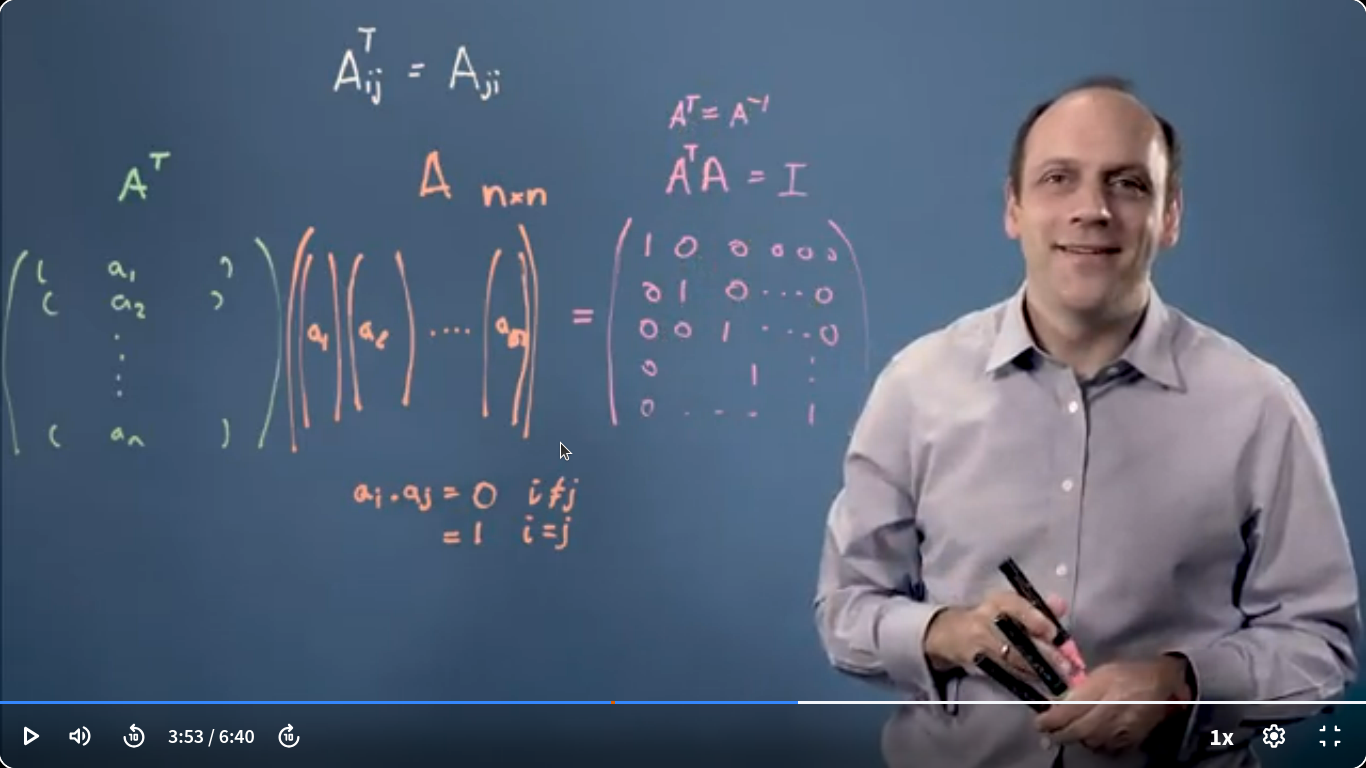 Aᵀij = Aji
Aᵀ = A⁻¹
AᵀA = I
Aᵀ
A n×n
( a₁ )
( a₂ )
⋮
( aₙ )
a₁ a₂ .... aₙ
=
1 0 0 0 0 0
0 1 0 ... 0
0 0 1 ... 0
0 1 ⋮
0 ... 1
aᵢ.aⱼ = 0 i≠j
= 1 i=j
10 3:53 / 6:40 10 1x